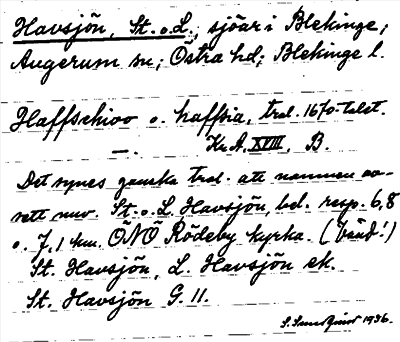 Havsjön, St. o. L., sjöar i Blekinge;
Augerum sn; Östra hd; Blekinge l.
Haffschioo o. haffsia, trol. 1670-talet.
—. Kr.A. XVIII, B.
Det synes ganska trol. att namnen av-
sett nuv. St. o. L. Havsjön, bel. resp. 6,8
o. 7,1 km. ONO Rödeby kyrka. (Vänd!)
St. Havsjön, L. Havsjön ek.
St. Havsjön G. 11.
1936.